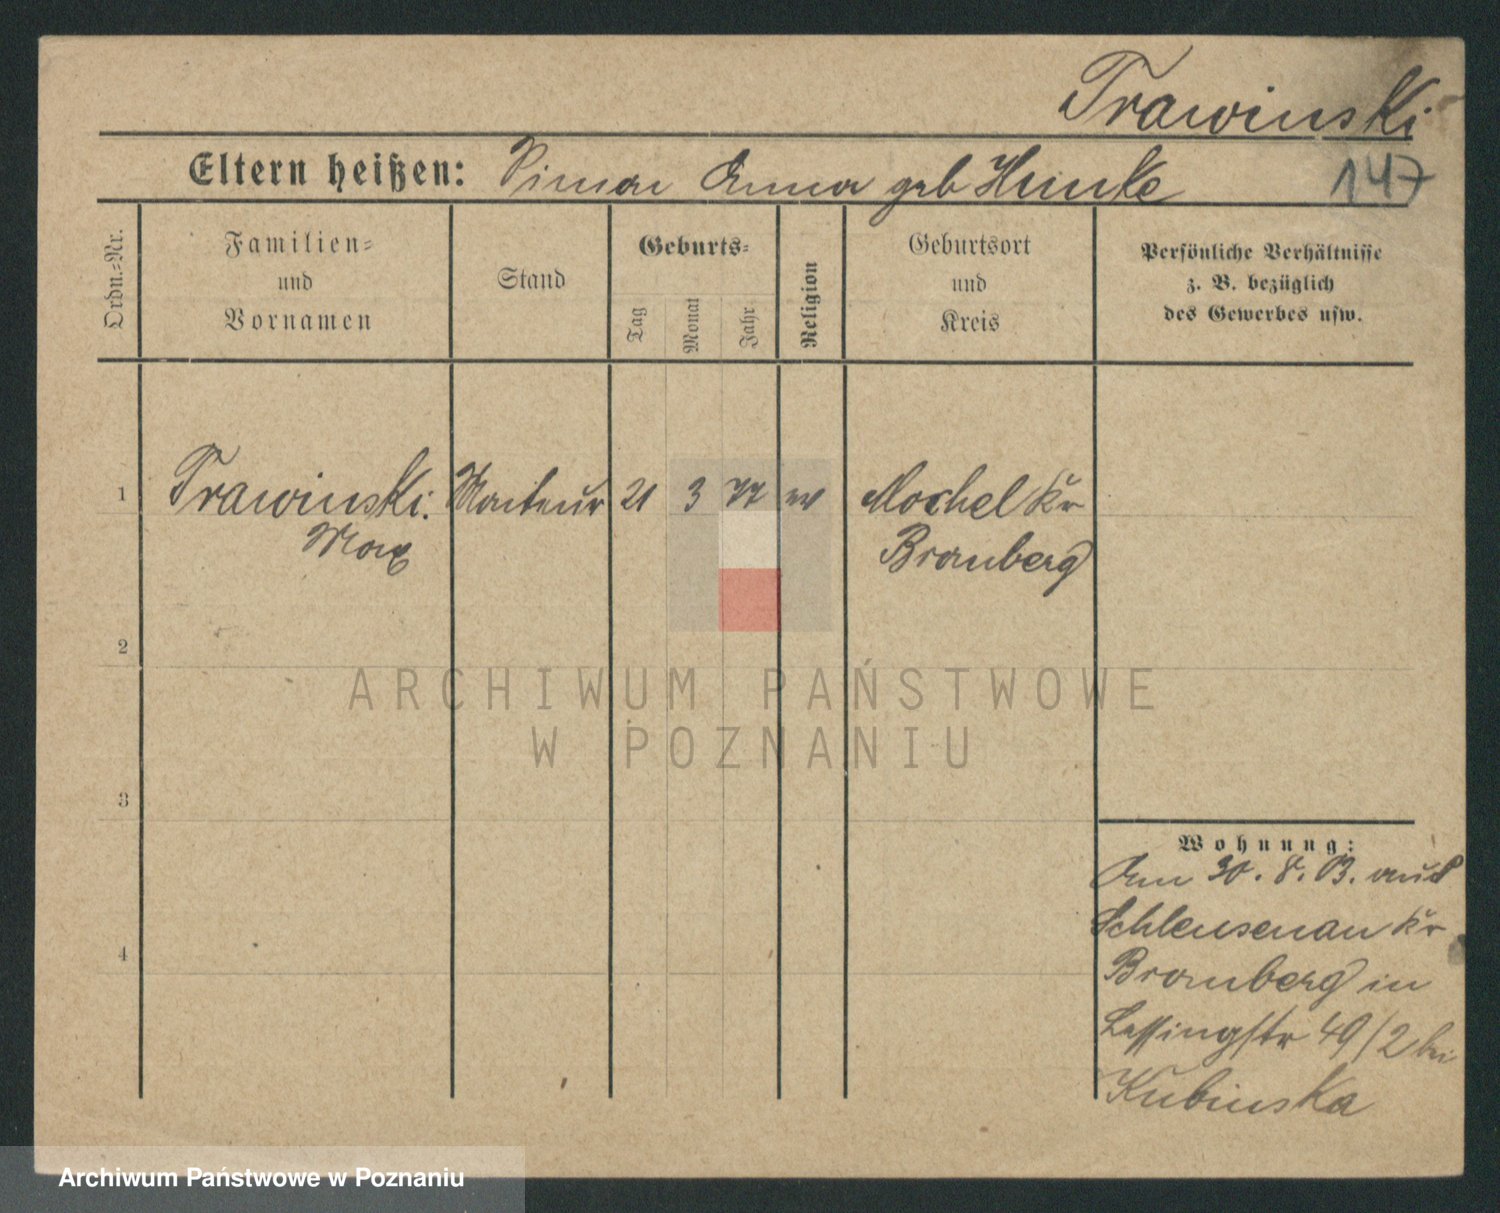 Trawinski
147
Eltern heißen: Anna geb
Ordn.=Nr.
Familien=
und
Vornamen
Stand
Geburts=
Tag
Monat
Jahr
Religion
Geburtsort
und
Kreis
Persönliche Verhältnisse
z. B. bezüglich
des Gewerbes usw.
1 Trawinski. Monteur 21 3 77 Mochel Kr
Max Bromberg
2
ARCHIWUM PAŃSTWOWE
W POZNANIU
3
Wohnung:
Am 30. 8. 03. aus
Schleusenau Kr
4
Bromberg in
Lessingstr 49/2 bei
Kubinska
Archiwum Państwowe w Poznaniu